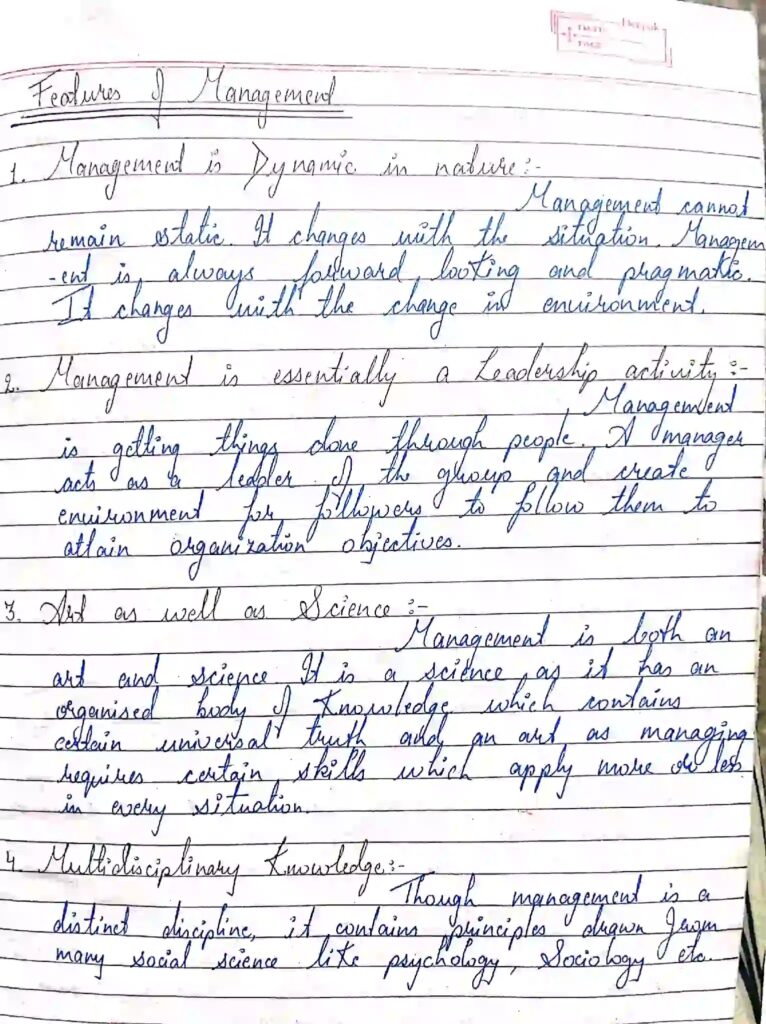 Features of Management
1. Management is Dynamic in nature :-
Management cannot
remain static. It changes with the situation. Managem
-ent is, always forward, looking and pragmatic.
It changes with the change in environment.
2. Management is essentially a Leadership activity :-
Management
is getting things done through people. A manager
acts as a leader of the group and create
environment for followers to follow them to
attain organization objectives.
3. Art as well as Science :-
Management is both an
art and science. It is a science, as it has an
organised body of Knowledge which contains
certain universal truth and, an art as managing
requires certain skills which apply more or less
in every situation.
4. Multidisciplinary Knowledge :-
Though management is a
distinct discipline, it contains principles drawn from
many social science like psychology, Sociology etc.